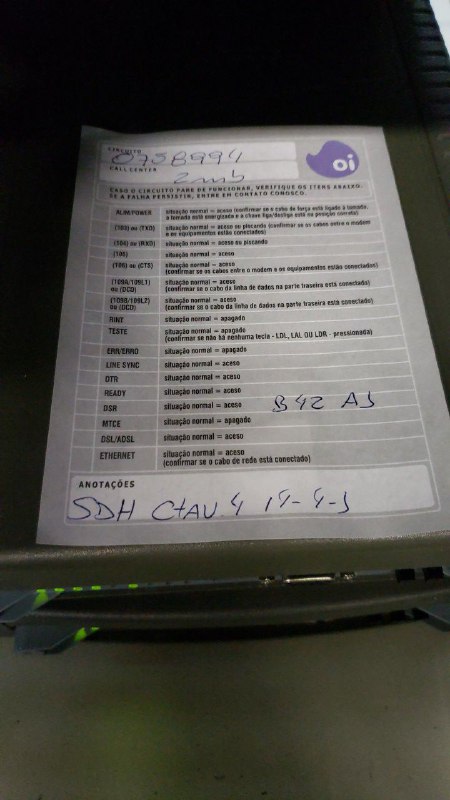 CIRCUITO
0758994
oi
CALL CENTER
2mb
CASO O CIRCUITO PARE DE FUNCIONAR, VERIFIQUE OS ITENS ABAIXO.
SE A FALHA PERSISTIR, ENTRE EM CONTATO CONOSCO.
ALIM/POWER situação normal = aceso (confirmar se o cabo de força está ligado à tomada,
a tomada está energizada e a chave liga/desliga está na posição correta)
(103) ou (TXD) situação normal = aceso ou piscando (confirmar se os cabos entre o modem
e os equipamentos estão conectados)
(104) ou (RXD) situação normal = aceso ou piscando
(105) situação normal = aceso
(106) ou (CTS) situação normal = aceso
(confirmar se os cabos entre o modem e os equipamentos estão conectados)
(109A/109L1) ou (DCD) situação normal = aceso
(confirmar se o cabo da linha de dados na parte traseira está conectado)
(109B/109L2) ou (DCD) situação normal = aceso
(confirmar se o cabo da linha de dados na parte traseira está conectado)
RINT situação normal = apagado
TESTE situação normal = apagado
(confirmar se não há nenhuma tecla - LDL, LAL OU LDR - pressionada)
ERR/ERRO situação normal = apagado
LINE SYNC situação normal = aceso
DTR situação normal = aceso
READY situação normal = aceso
DSR situação normal = aceso
MTCE situação normal = apagado
DSL/ADSL situação normal = aceso
ETHERNET situação normal = aceso
(confirmar se o cabo de rede está conectado)
ANOTAÇÕES
SDH 4